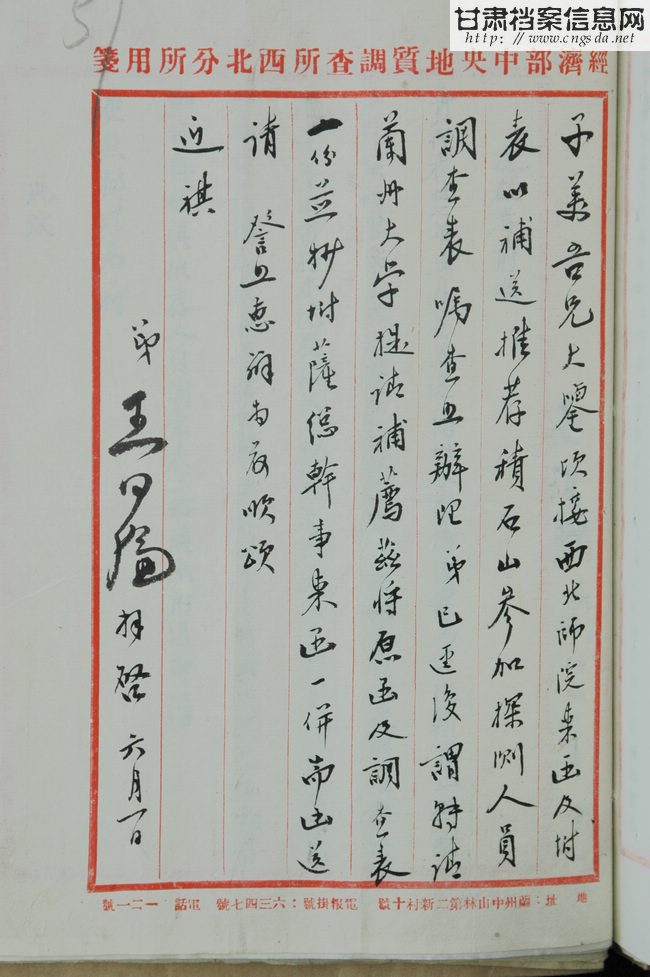 甘肃档案信息网
http://www.cngsda.net
經濟部中央地質調查所西北分所用箋
子美吾兄大鑒頃接西北師院來函及附
表以補送推荐積石山參加探測人員
調查表囑查照辦理弟已逕復謂特請
蘭州大學提請補薦茲將原函及調查表
一份並抄附薩總幹事來函一併奉函送
請 詧照惠辦為荷順頌
近祺
弟王曰倫拜啓 六月一日
地址：蘭州中山林第二新村十號 電報掛號：六三四七號 電話 一二一號